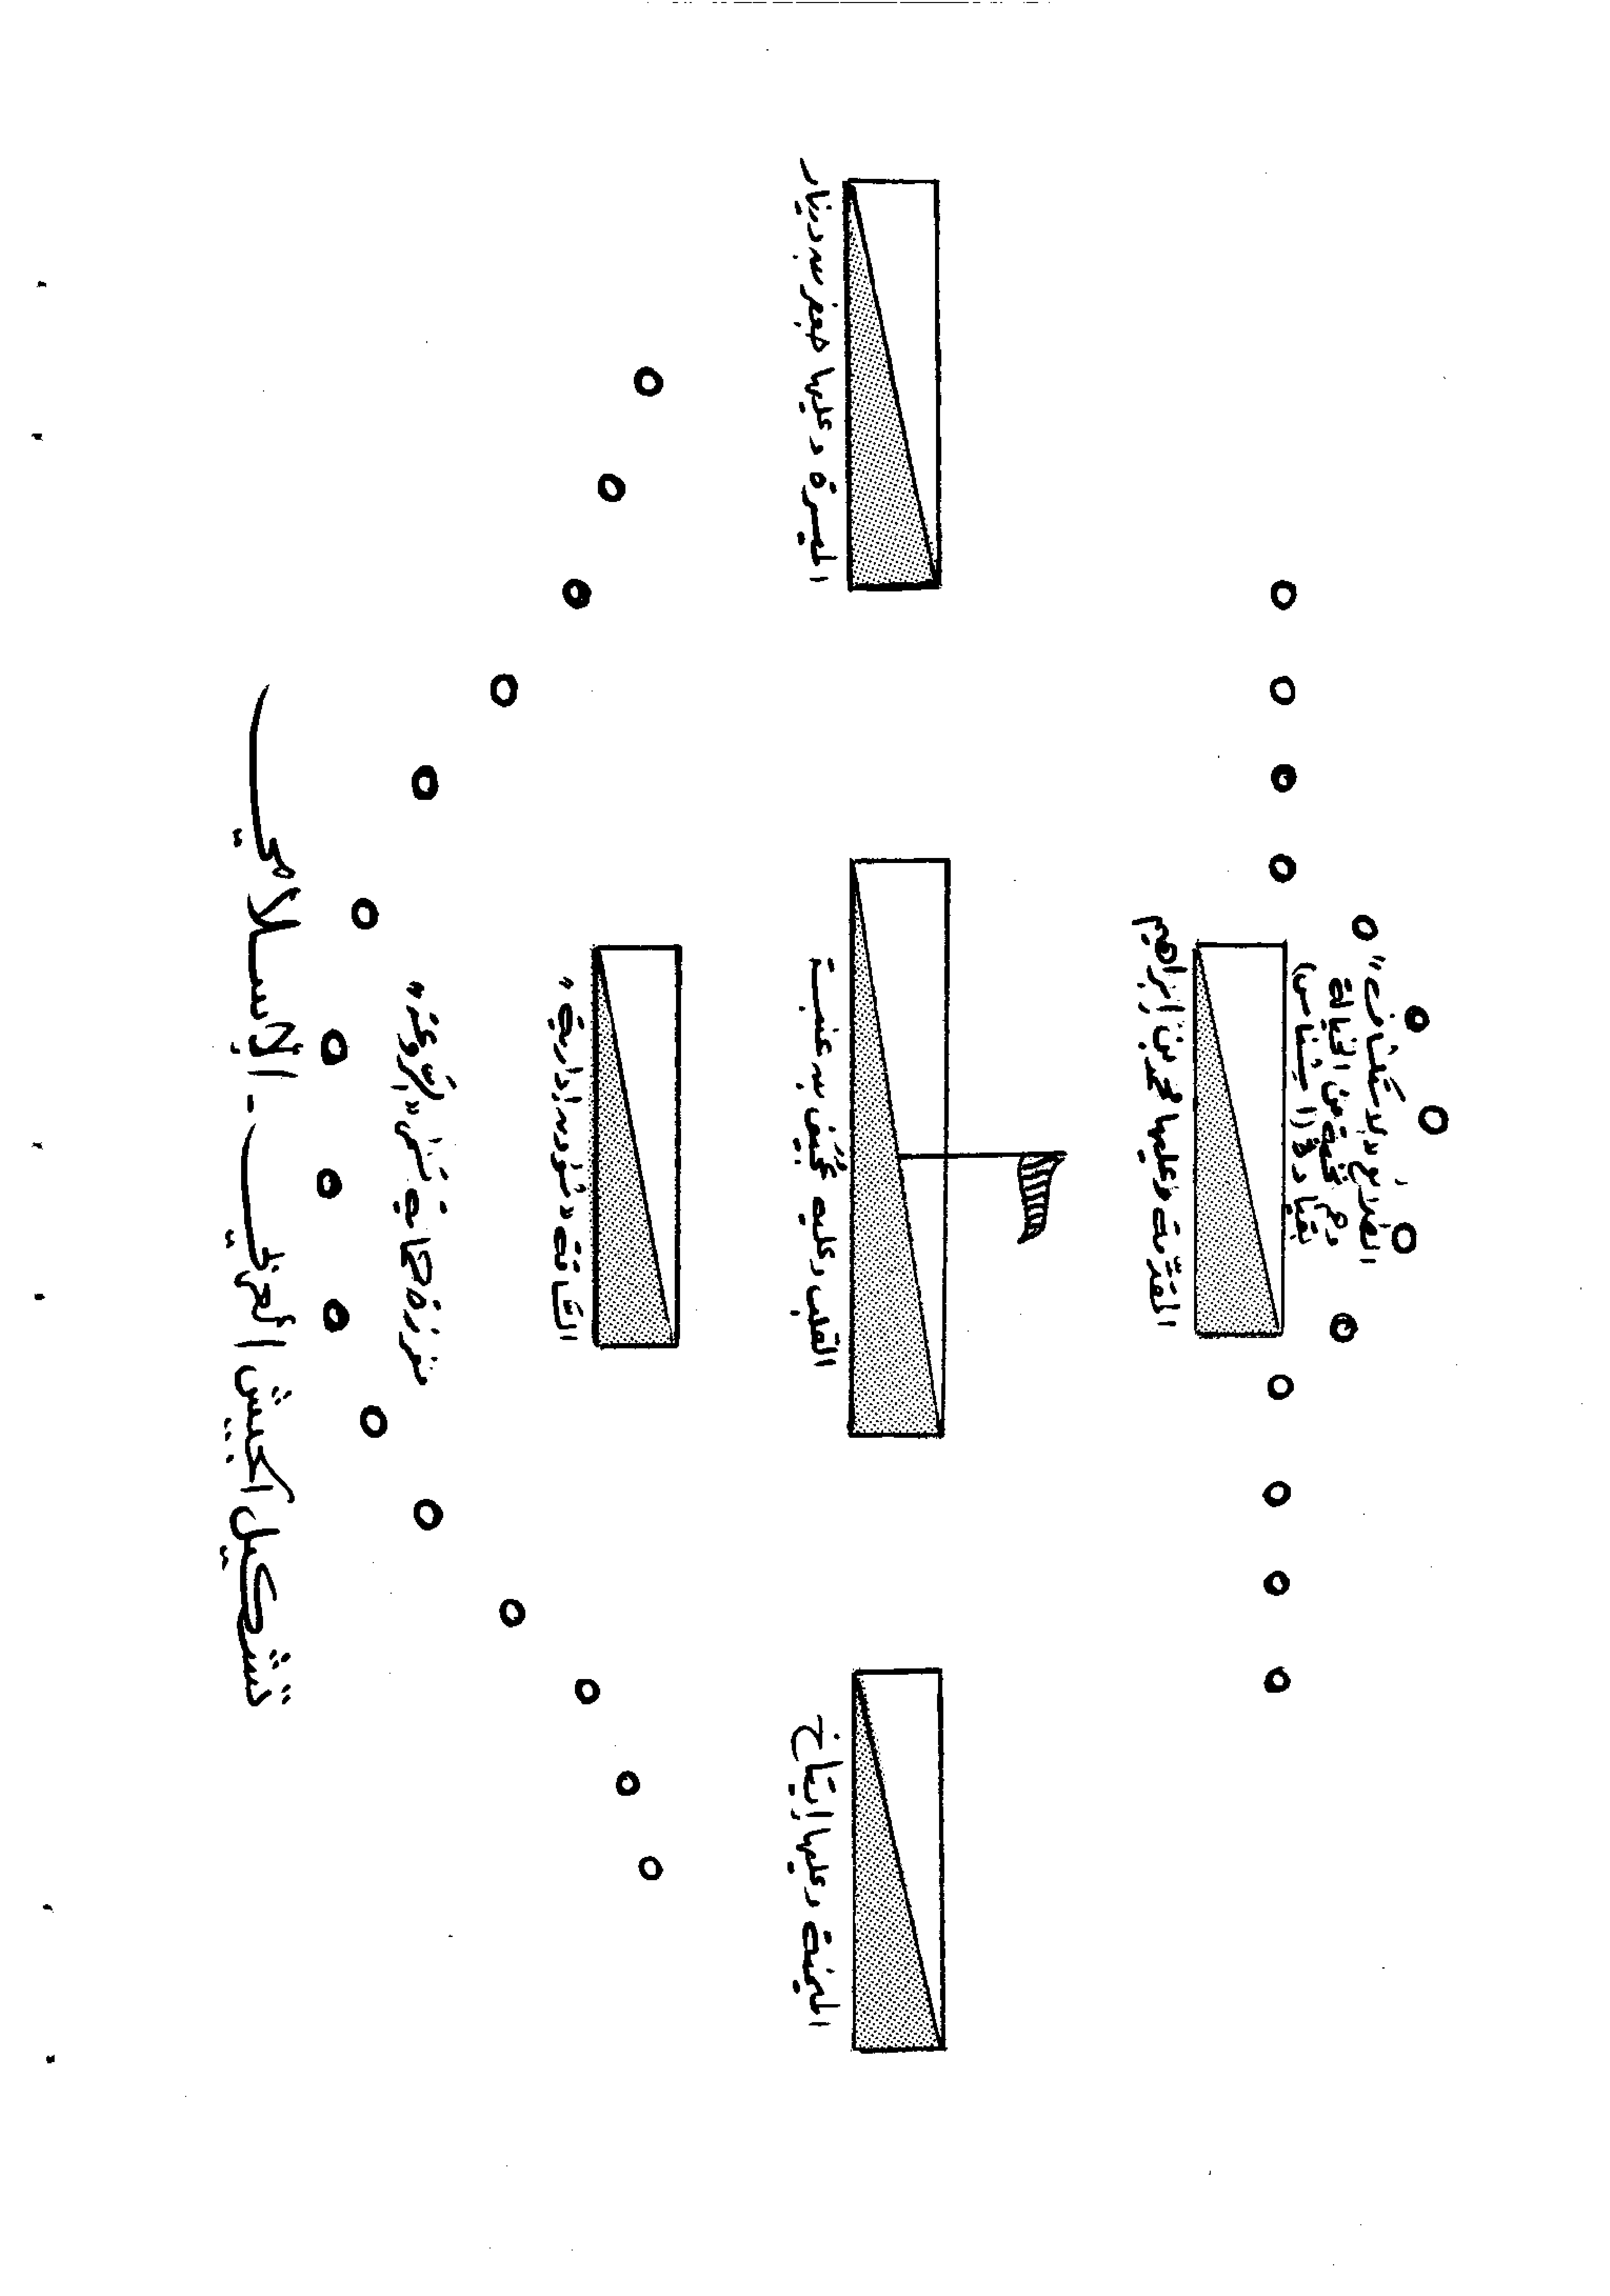 الطلائع «بدركشاف»
وهم نخبة من الخيالة
بقيادة (اشناس)
المقدّمة وعليها محمد بن إبراهيم
الميسرة وعليها جعفر بن دينار
القلب وعليه عجيف بن عنبسة
الميمنة وعليها إيتاخ
الساقة «شؤون إدارية»
مفرزة حماية
تشكيل الجيش العربي - الإسلامي